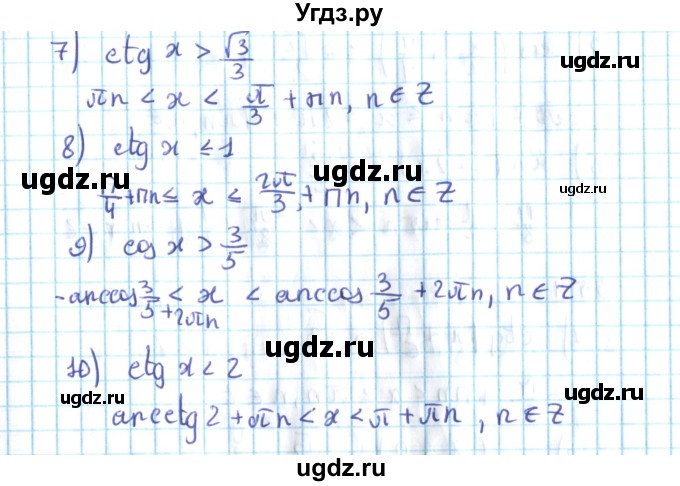 Угдз.ру
7) ctg x > √3/3
πn < x < π/3 + πn, n ∈ Z
8) ctg x ≤ 1
π/4 + πn ≤ x ≤ 2π/3 + πn, n ∈ Z
9) cos x > 3/5
-arccos 3/5 + 2πn < x < arccos 3/5 + 2πn, n ∈ Z
10) ctg x < 2
arcctg 2 + πn < x < π + πn, n ∈ Z
ugdz.ru
ugdz.ru
ugdz.ru
ugdz.ru
ugdz.ru
ugdz.ru
ugdz.ru
ugdz.ru
ugdz.ru
ugdz.ru
ugdz.ru
ugdz.ru
ugdz.ru